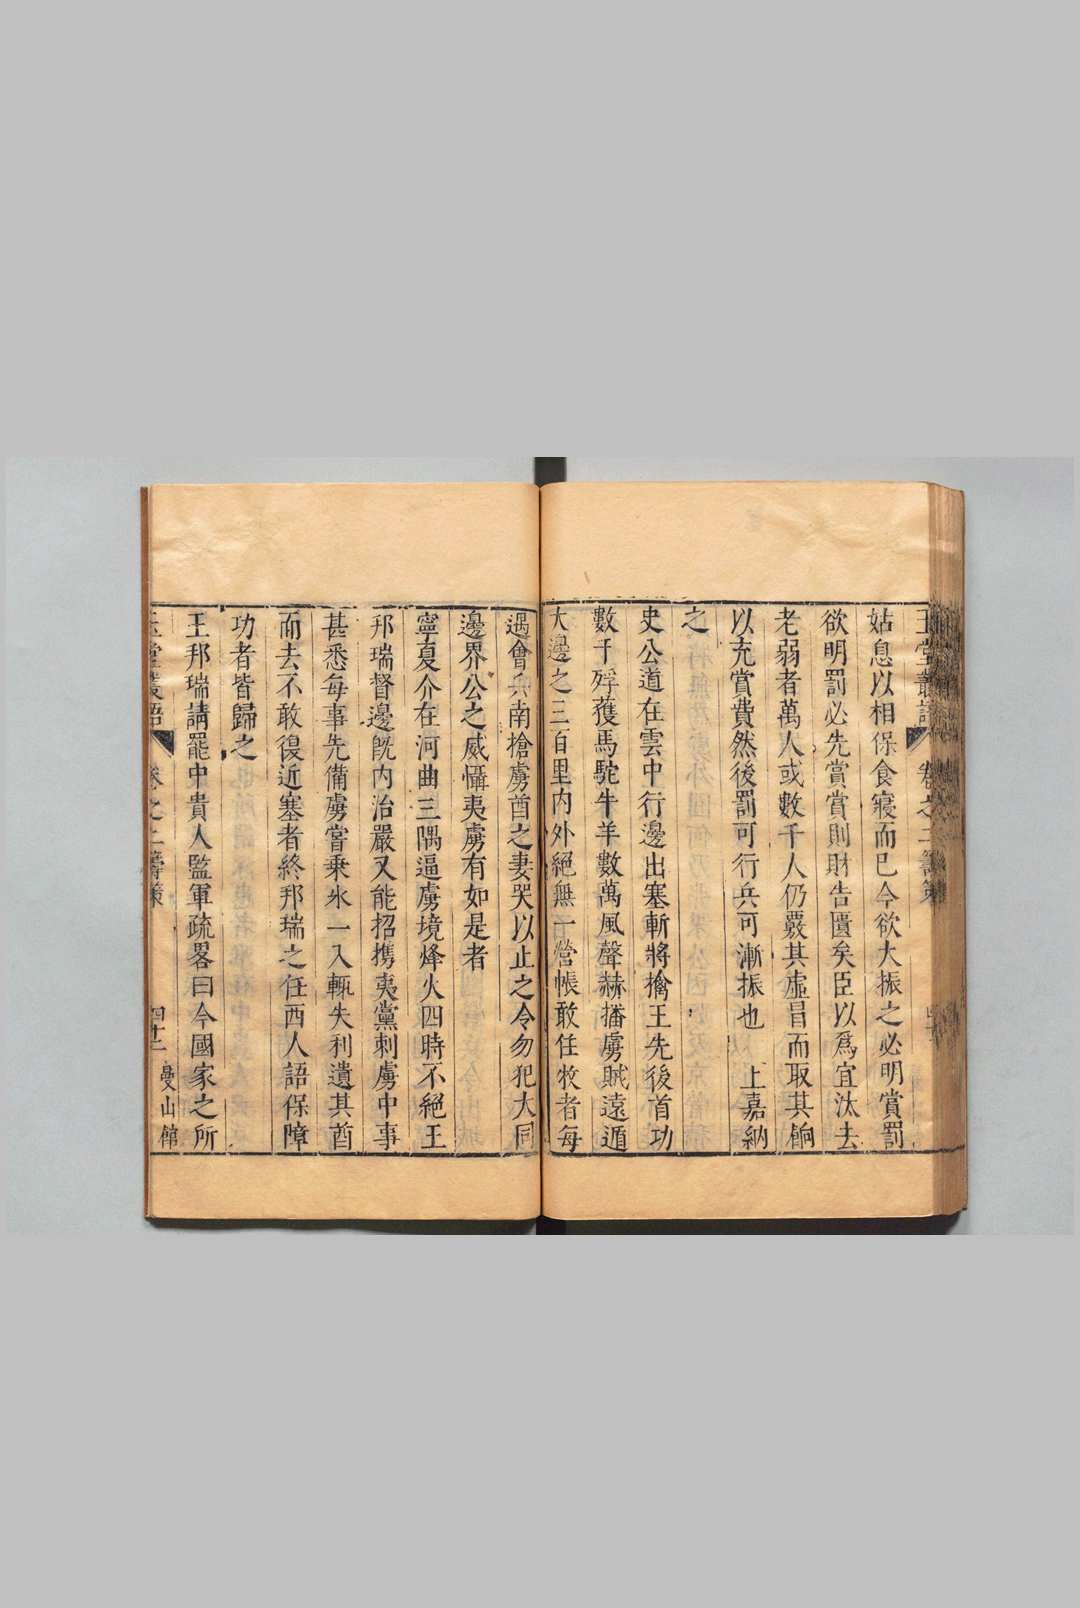 玉堂叢語 卷之二籌策
姑息以相保食寢而已今欲大振之必明賞罰
欲明罰必先賞賞則財告匱矣臣以爲宜汰去
老弱者萬人或數千人仍覈其虛冒而取其餉
以充賞費然後罰可行兵可漸振也 上嘉納
之
史公道在雲中行邊出塞斬將擒王先後首功
數千殍蒦馬駝牛羊數萬風聲赫播虜賊遠遁
大邊之三百里内外絕無一營帳敢任牧者每
遇會兵南搶虜酋之妻哭以止之令勿犯大同
邊界公之威懾夷虜有如是者
寧夏介在河曲三隅逼虜境烽火四時不絕王
邦瑞督邊旣内治嚴又能招携夷黨刺虜中事
甚悉每事先備虜嘗乘氷一入輒失利遺其酋
而去不敢復近塞者終邦瑞之任西人語保障
功者皆歸之
王邦瑞請罷中貴人監軍疏畧曰今國家之所
玉堂叢語 卷之二籌策 四十二 曼山館